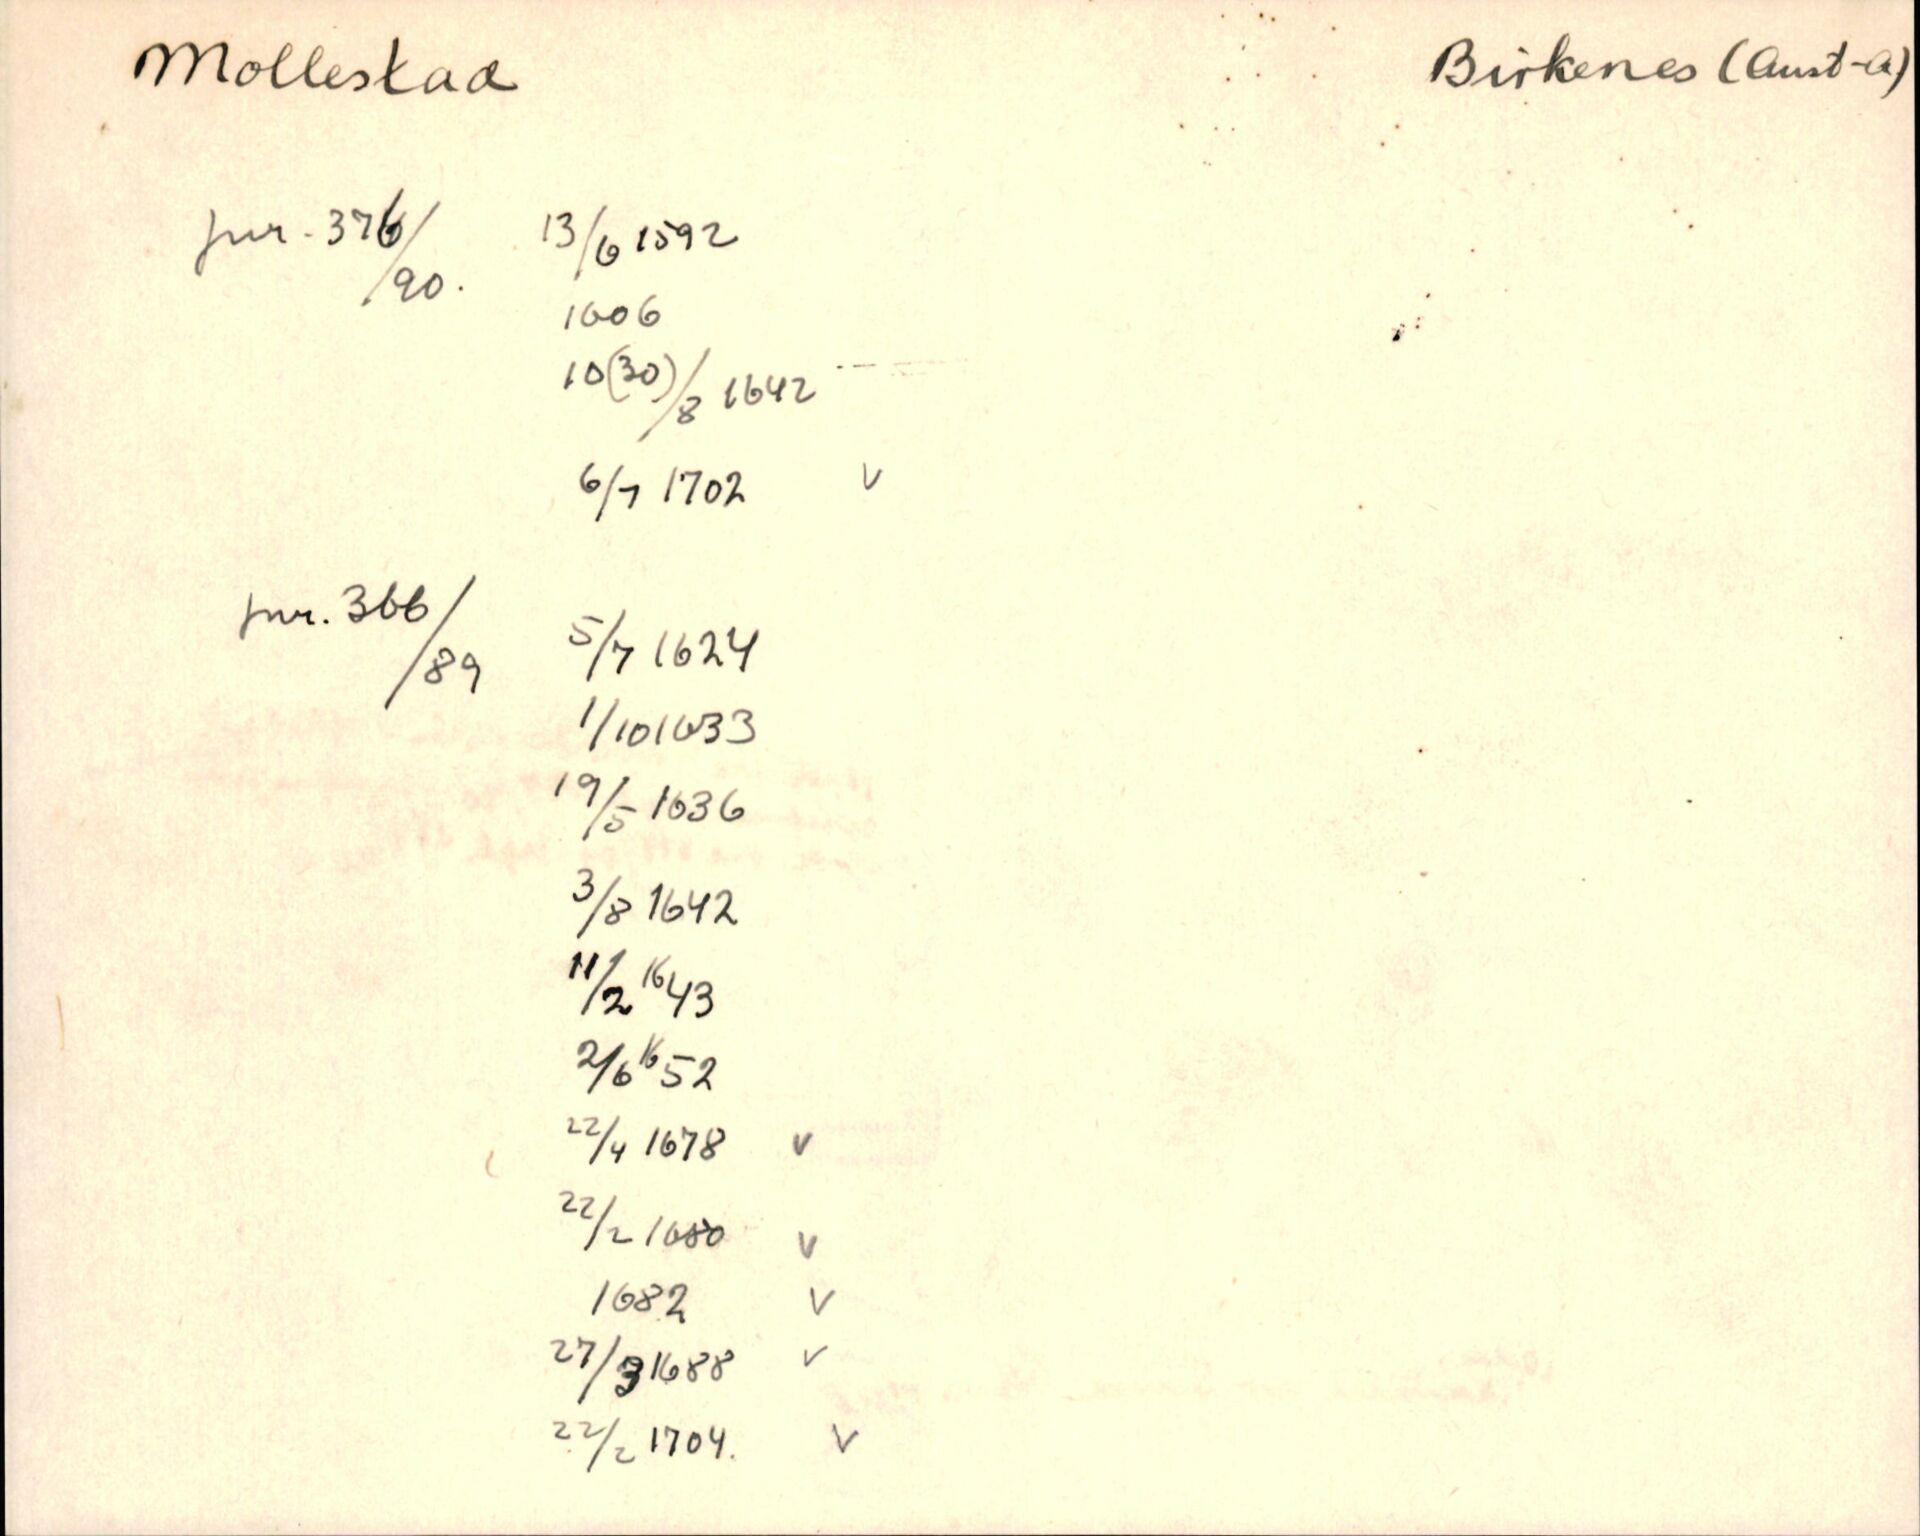 Mollestad Birkenes (Aust-A)
jnr. 376/90. 13/6 1592
1606
10(30)/8 1642
6/7 1702 v
jnr. 366/89 5/7 1624
1/10 1633
19/5 1636
3/8 1642
11/2 1643
2/6 1652
22/4 1678 v
22/2 1680 v
1682 v
27/3 1688 v
22/2 1704. v